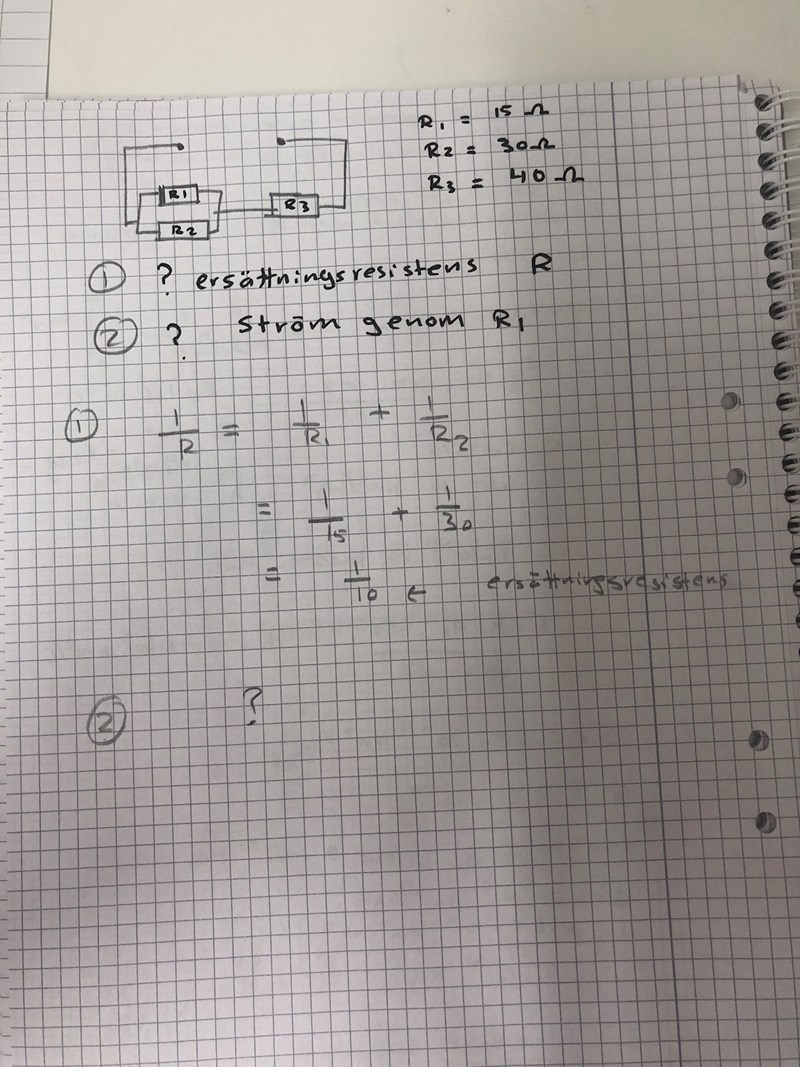 R1 = 15 Ω
R2 = 30 Ω
R3 = 40 Ω
R1
R2
R3
① ? ersättningsresistens R
② ? Ström genom R1
① 1/R = 1/R1 + 1/R2
= 1/15 + 1/30
= 1/10 ← ersättningsresistens
② ?